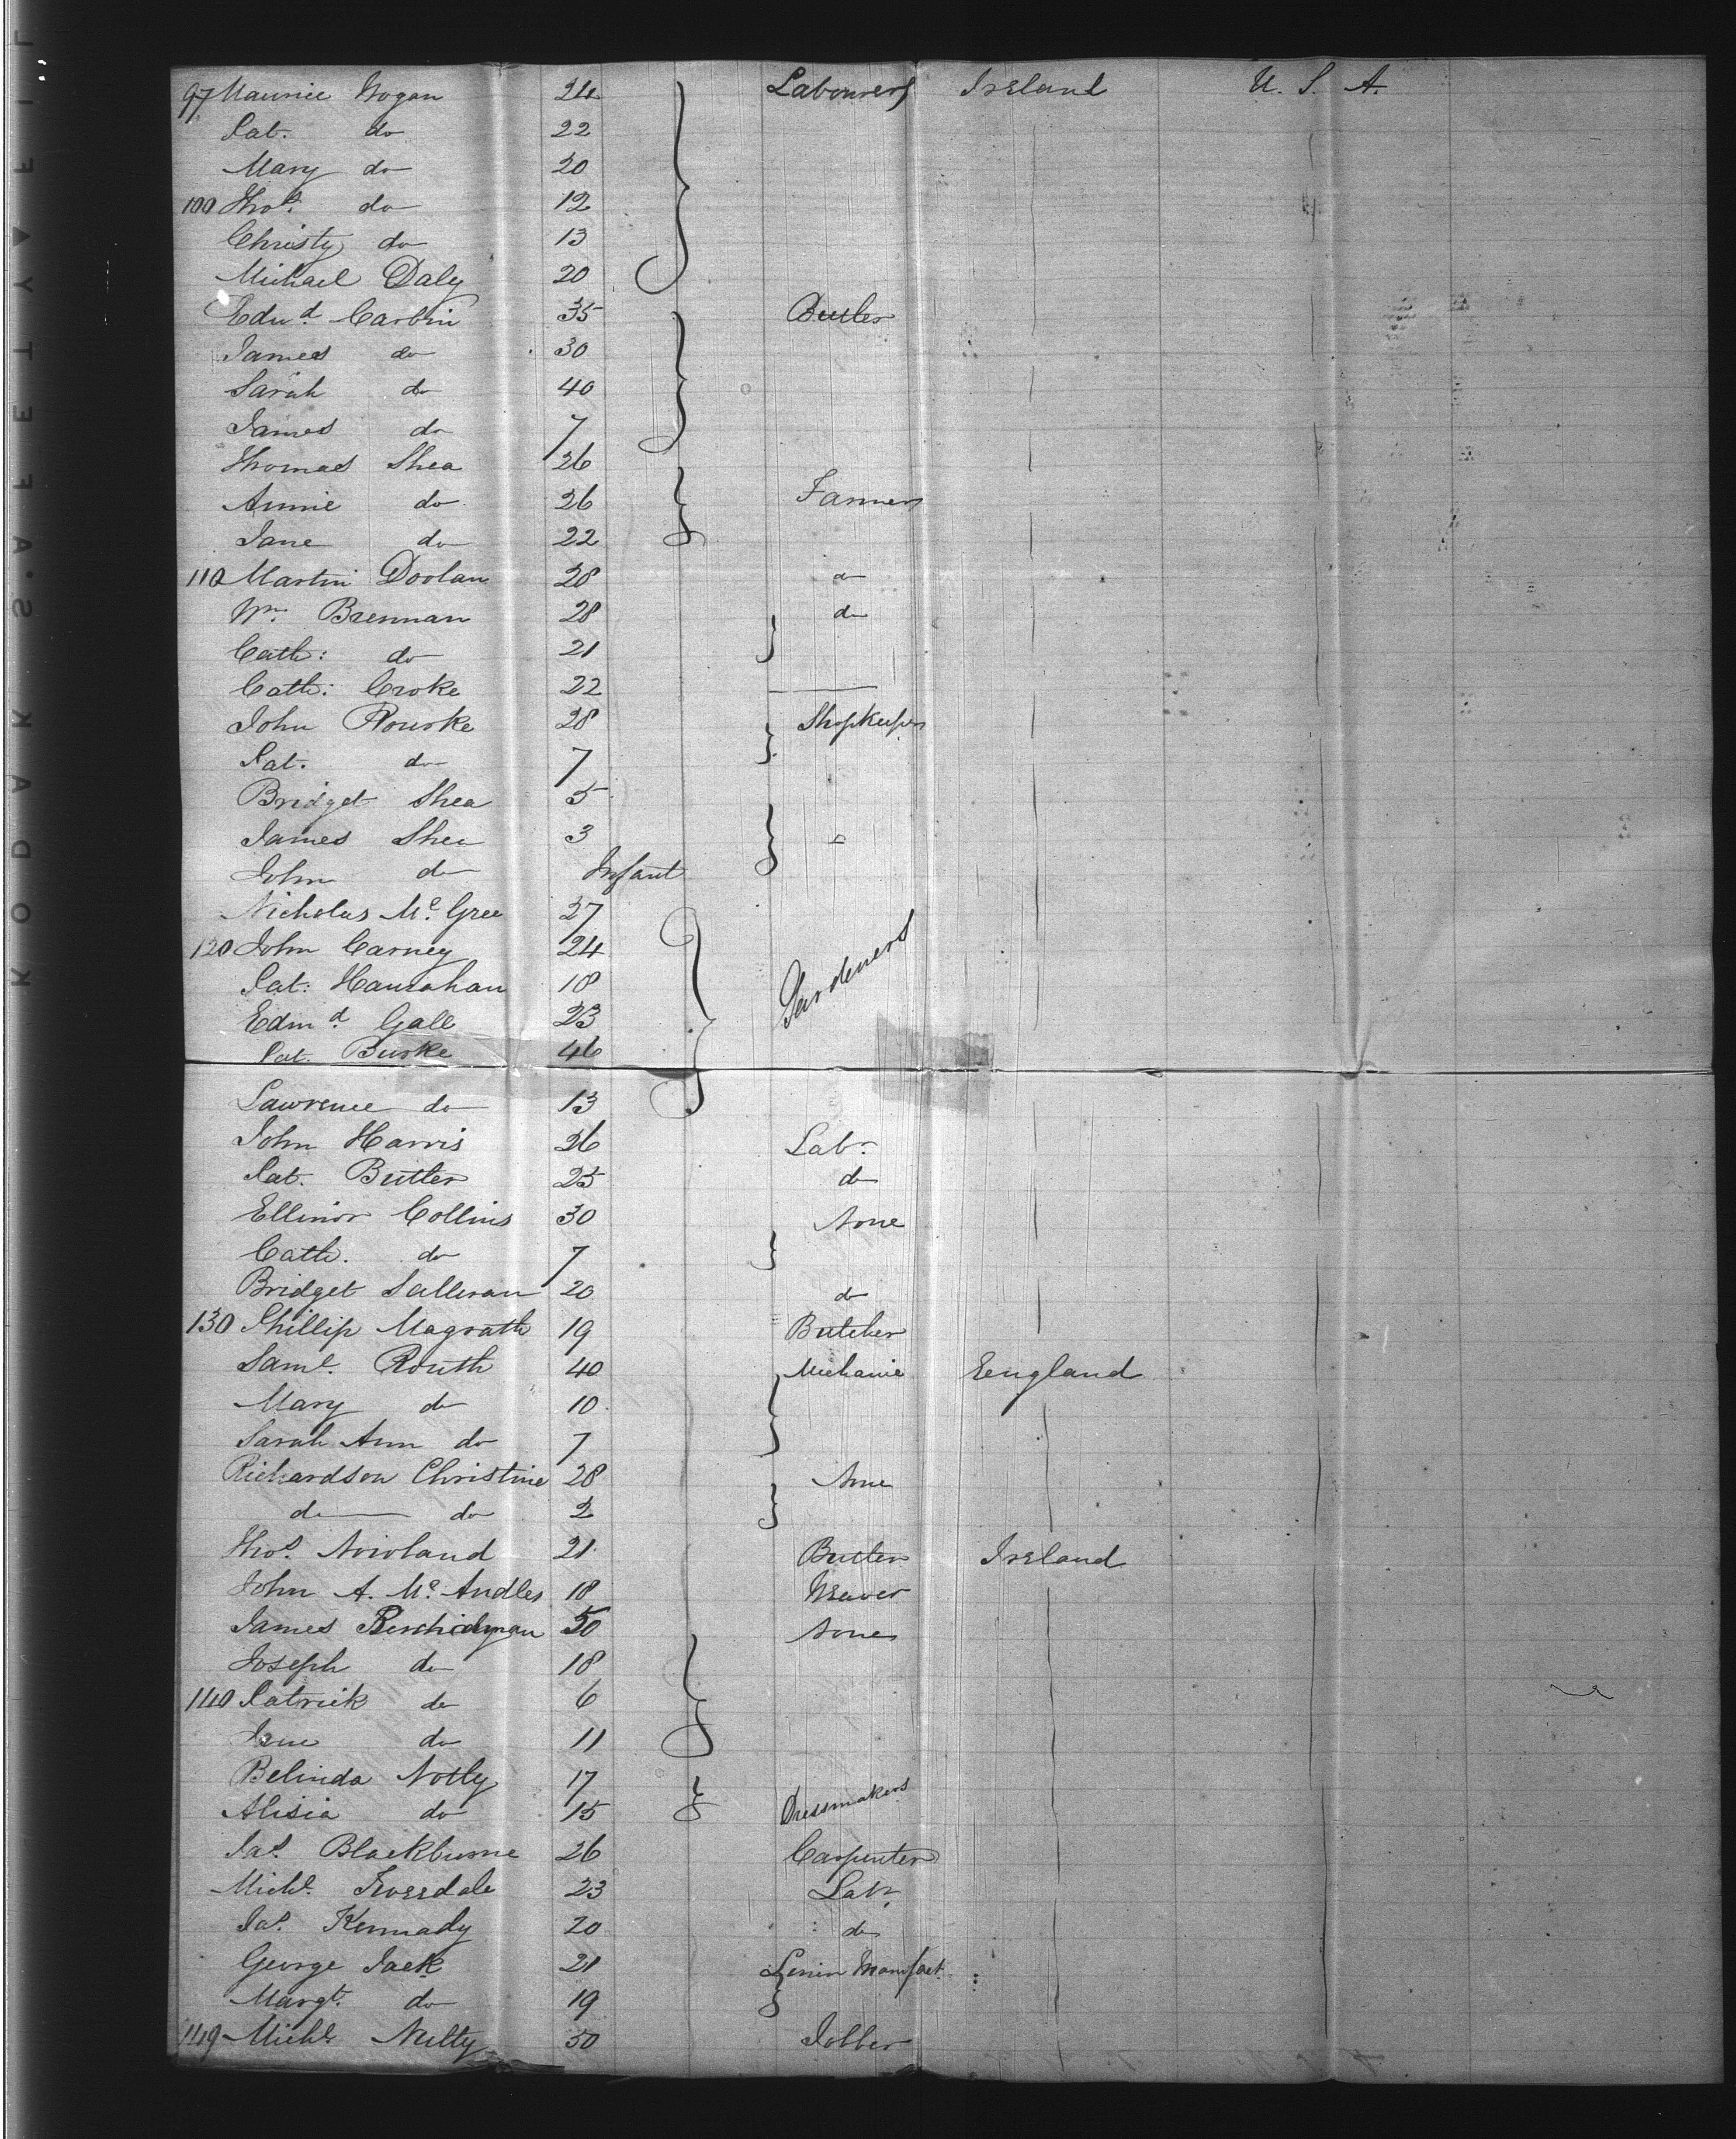 97 Maurice Hogan 24 Labourers Ireland U. S. A.
Pat. do 22
Mary do 20
100 Thos. do 12
Christy do 13
Michael Daly 20
Edwd Corbin 35 Butler
James do 30
Sarah do 40
James do 7
Thomas Shea 26
Annie do 26 Farmers
Jane do 22
110 Martin Doolan 28 do
Wm. Brennan 28 do
Cath: do 21
Cath: Croke 22
John Rourke 28 Shopkeeper
Pat. do 7
Bridget Shea 5
James Shea 3
John do Infant
Nicholas Mc. Gree 27
120 John Carney 24
Pat: Hanrahan 18 Gardeners
Edmd Gall 23
Pat. Burke 46
Lawrence do 13
John Harris 26 Labr.
Pat. Butler 25 do
Ellinor Collins 30 None
Cath. do 7
Bridget Sullivan 20 do
130 Phillip Magrath 19 Butcher
Saml. Routh 40 Mechanic Eengland
Mary do 10
Sarah Ann do 7
Richardson Christine 28 None
do do 2
Thos. Nowland 21 Butler Ireland
John A. Mc. Andles 18 Weaver
James 50 None
Joseph do 18
140 Patrick do 6
Jane do 11
Belinda Notly 17
Alisia do 15 Dressmakers
Jas. Blackburne 26 Carpenter
Michl. 23 Labr
Jas. Kennady 20 do
George Jack 21 Linin Manfact.
Margt. do 19
149 Michl. Nulty 50 Jobber
KODAK·SAFETY▲FIL